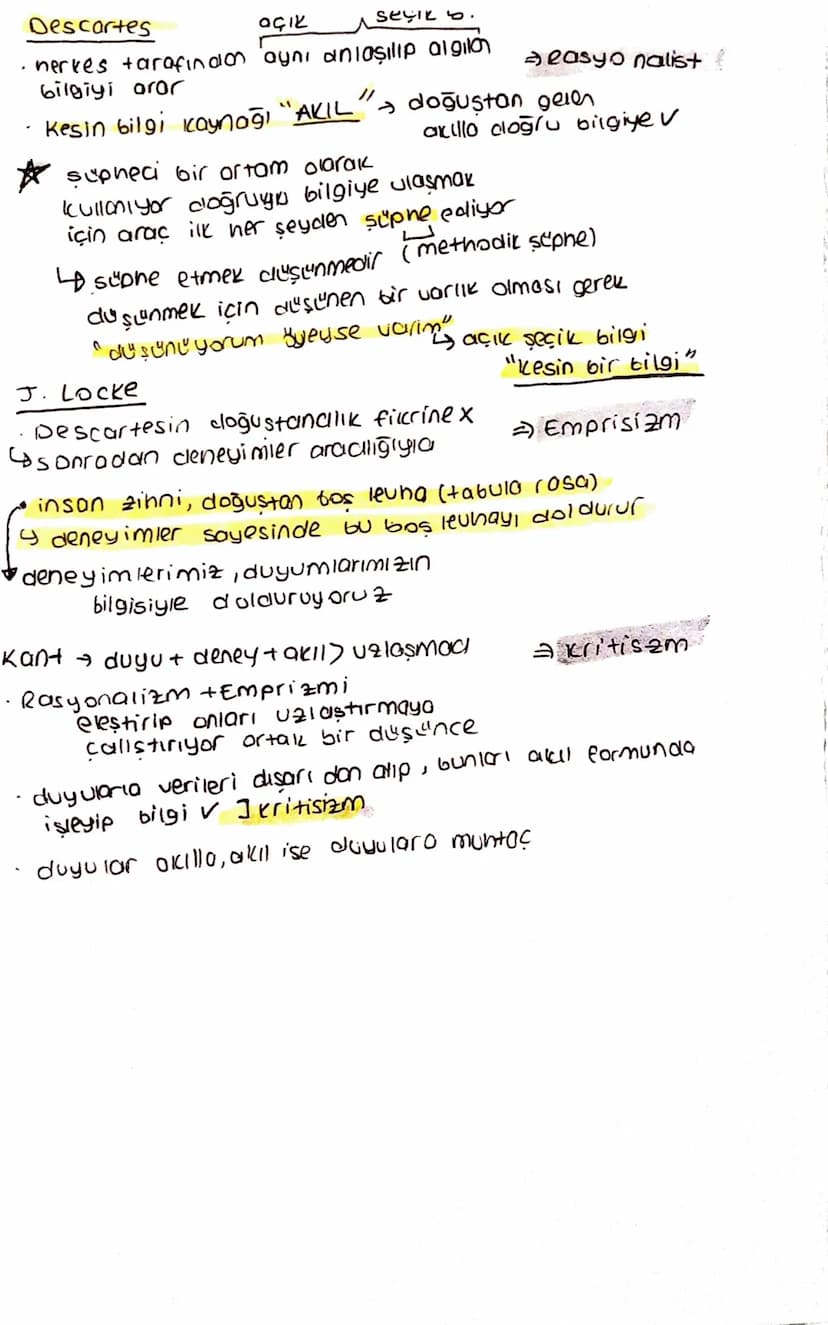 Descartes
açık seçik b.
• herkes tarafından aynı anlaşılıp algılan ⇒ Rasyonalist
bilgiyi arar
• Kesin bilgi kaynağı "AKIL" → doğuştan gelen
akılla doğru bilgiye ✓
☆ şüpheci bir ortam olarak
kullanıyor doğruya bilgiye ulaşmak
için araç ilk her şeyden şüphe ediyor
↳ şüphe etmek düşünmedir (methodik şüphe)
düşünmek için düşünen bir varlık olması gerek
"düşünüyorum öyleyse varım" ↳ açık seçik bilgi
"Kesin bir bilgi"
J. Locke
• Descartesin doğuştancılık fikrine x ⇒ Emprisizm
↳ sonradan deneyimler aracılığıyla
• insan zihni, doğuştan boş levha (tabula rasa)
↳ deneyimler sayesinde bu boş levhayı doldurur
deneyimlerimiz, duyumlarımızın
bilgisiyle dolduruyoruz
Kant → duyu + deney + akıl > uzlaşmacı ⇒ kritiszm
• Rasyonalizm + Emprizmi
eleştirip onları uzlaştırmaya
çalıştırıyor ortak bir düşünce
• duyularla verileri dışarı dan alıp, bunları akıl formunda
işleyip bilgi ✓ ] kritisizm
• duyular akılla, akıl ise duyulara muhtaç